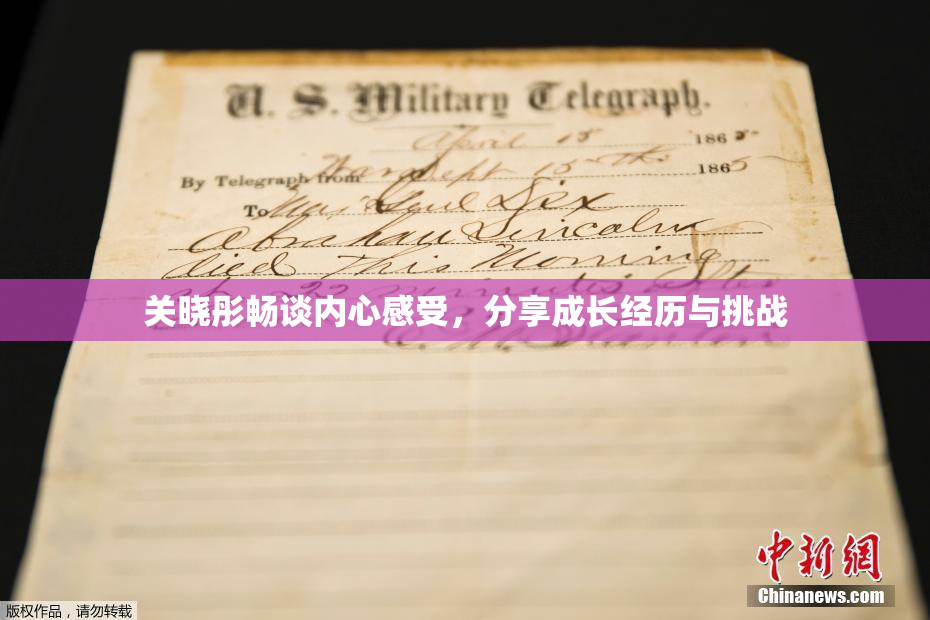 U. S. Military Telegraph.
April 15 1865
By Telegraph from War Dept 15th 1865
To Maj Genl Dix
Abraham Lincoln
died This Morning
22 minutes after
关晓彤畅谈内心感受，分享成长经历与挑战
E. M. Stanton
中新网
Chinanews.com
版权作品，请勿转载